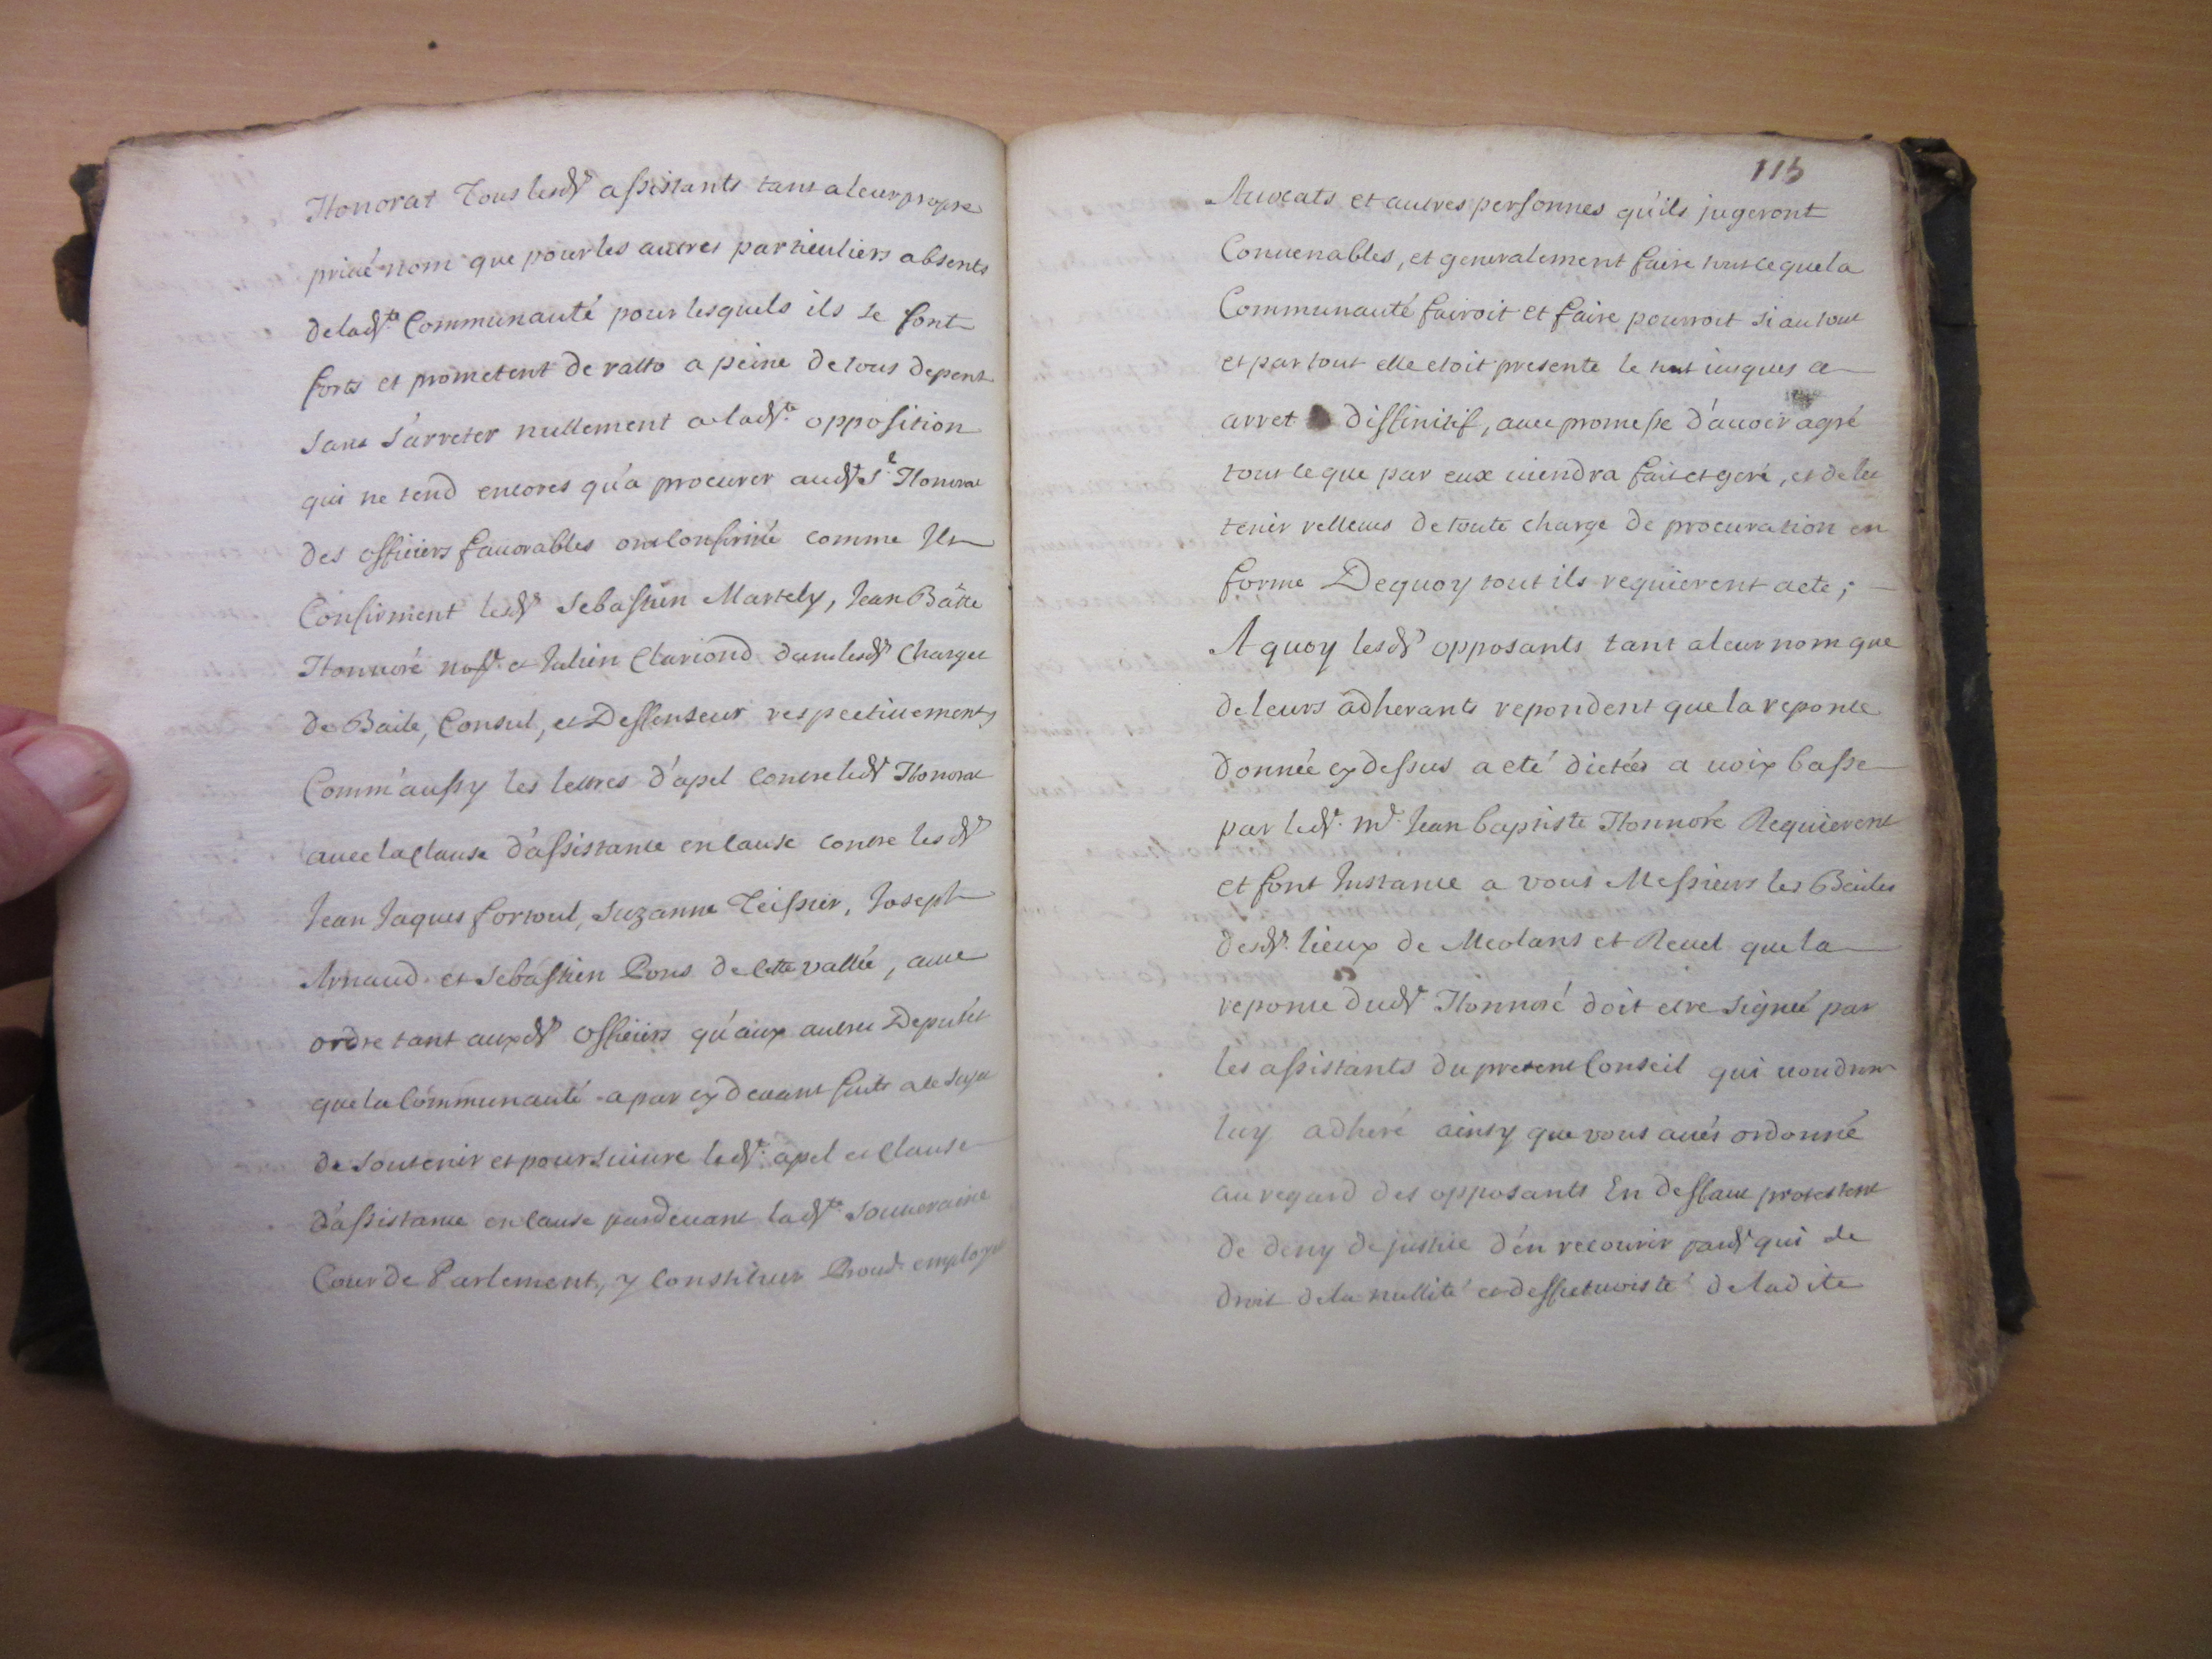 Honorat Tous lesd.s assistants tant a leur propre
privé nom que pour les autres particuliers absents
de lad.te Communauté pour lesquels ils se font
forts et prometent de ratto a peine de tous depens
sans s'arreter nullement a lad.te opposition
qui ne tend encores qu'a procurer aud.t S.r Honorat
des officiers favorables ont confirmé comme Ils
Confirment lesd.s Sebastien Martely, Jean Bàtte
Honnoré no.re et Julien Clariond dans lesd.s Charges
de Baile, Consul, et Deffenseur respectivement,
Comm'aussy les lettres d'apel contre led.t Honorat
avec la clause d'assistance en cause contre lesd.s
Jean Jaques fortoul, Suzanne Teissier, Joseph
Arnaud et Sebastien Pons de cette vallée, avec
ordre tant auxd.s officiers qu'aux autres Deputés
que la Communauté a par cy devant faits a ce sujet
de soutenir et poursuivre led.t apel et Clause
d'assistance en cause pardevant lad.te Souveraine
Cour de Parlement, y Constituer Procur. employer
115
Avocats et autres personnes qu'ils jugeront
Convenables, et generalement faire tout ce que la
Communauté fairoit et faire pourroit si au tout
et par tout elle etoit presente le tout jusques a
arret diffinitif, avec promesse d'avoir agré
tout ce que par eux viendra fait et geré, et de les
tenir relleves de toute charge de procuration en
forme Dequoy tout ils requierent acte;
A quoy lesd.s opposants tant a leur nom que
de leurs adherants repondent que la reponce
donnée cy dessus a eté dictéés a voix basse
par led.t m.e Jean baptiste Honnoré Requierent
et font Instance a vous Messieurs les Bailes
desd.s lieux de Meolans et Revel que la
reponce dud.t Honnoré doit etre signée par
les assistants du present Conseil qui voudront
luy adheré ainsy que vous avés ordonné
au regard des opposants En deffaut protestent
de deny de justice d'en recourir pard.t qui de
droit de la nullité et deffectuosité de ladite